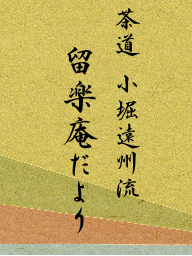 茶道 小堀遠州流
留楽庵だより